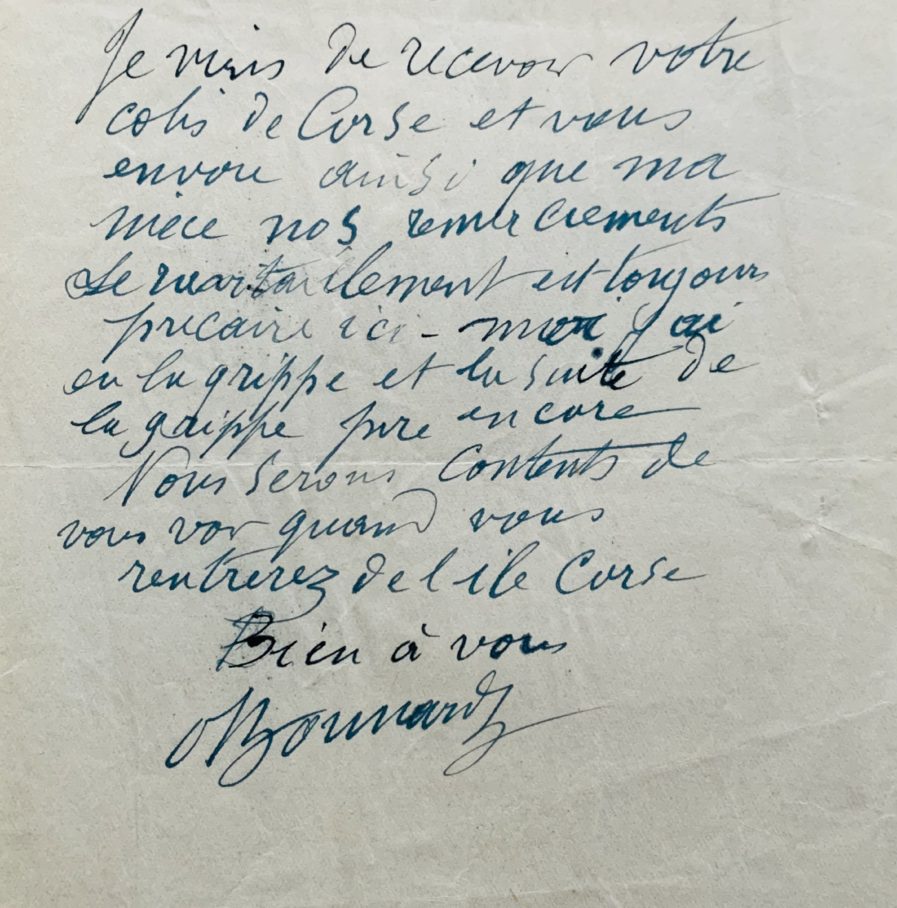 Je viens de recevoir votre
colis de Corse et vous
envoie ainsi que ma
nièce nos remerciements
Le ravitaillement est toujours
précaire ici - moi j ai
eu la grippe et la suite de
la grippe pire encore
Nous serons contents de
vous voir quand vous
rentrerez de l ile Corse
Bien à vous
PBonnard